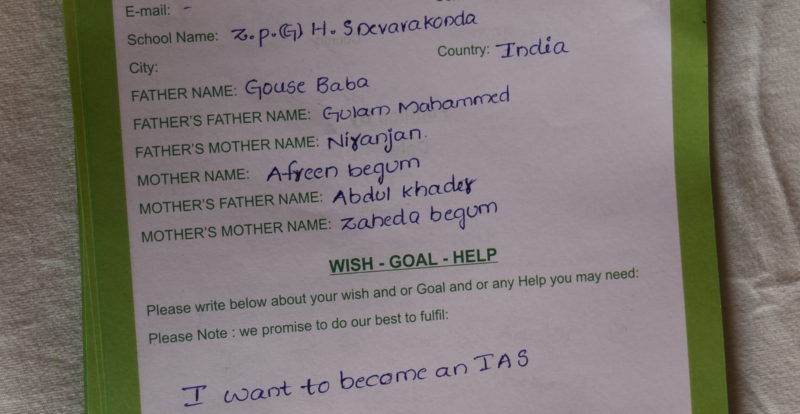 E-mail: -
School Name: Z.p.(G) H.S Devarakonda
City: Country: India
FATHER NAME: Gouse Baba
FATHER'S FATHER NAME: Gulam Mahammed
FATHER'S MOTHER NAME: Niranjan.
MOTHER NAME: Afreen begum
MOTHER'S FATHER NAME: Abdul khader
MOTHER'S MOTHER NAME: Zaheda begum
WISH - GOAL - HELP
Please write below about your wish and or Goal and or any Help you may need:
Please Note : we promise to do our best to fulfil:
I want to become an IAS